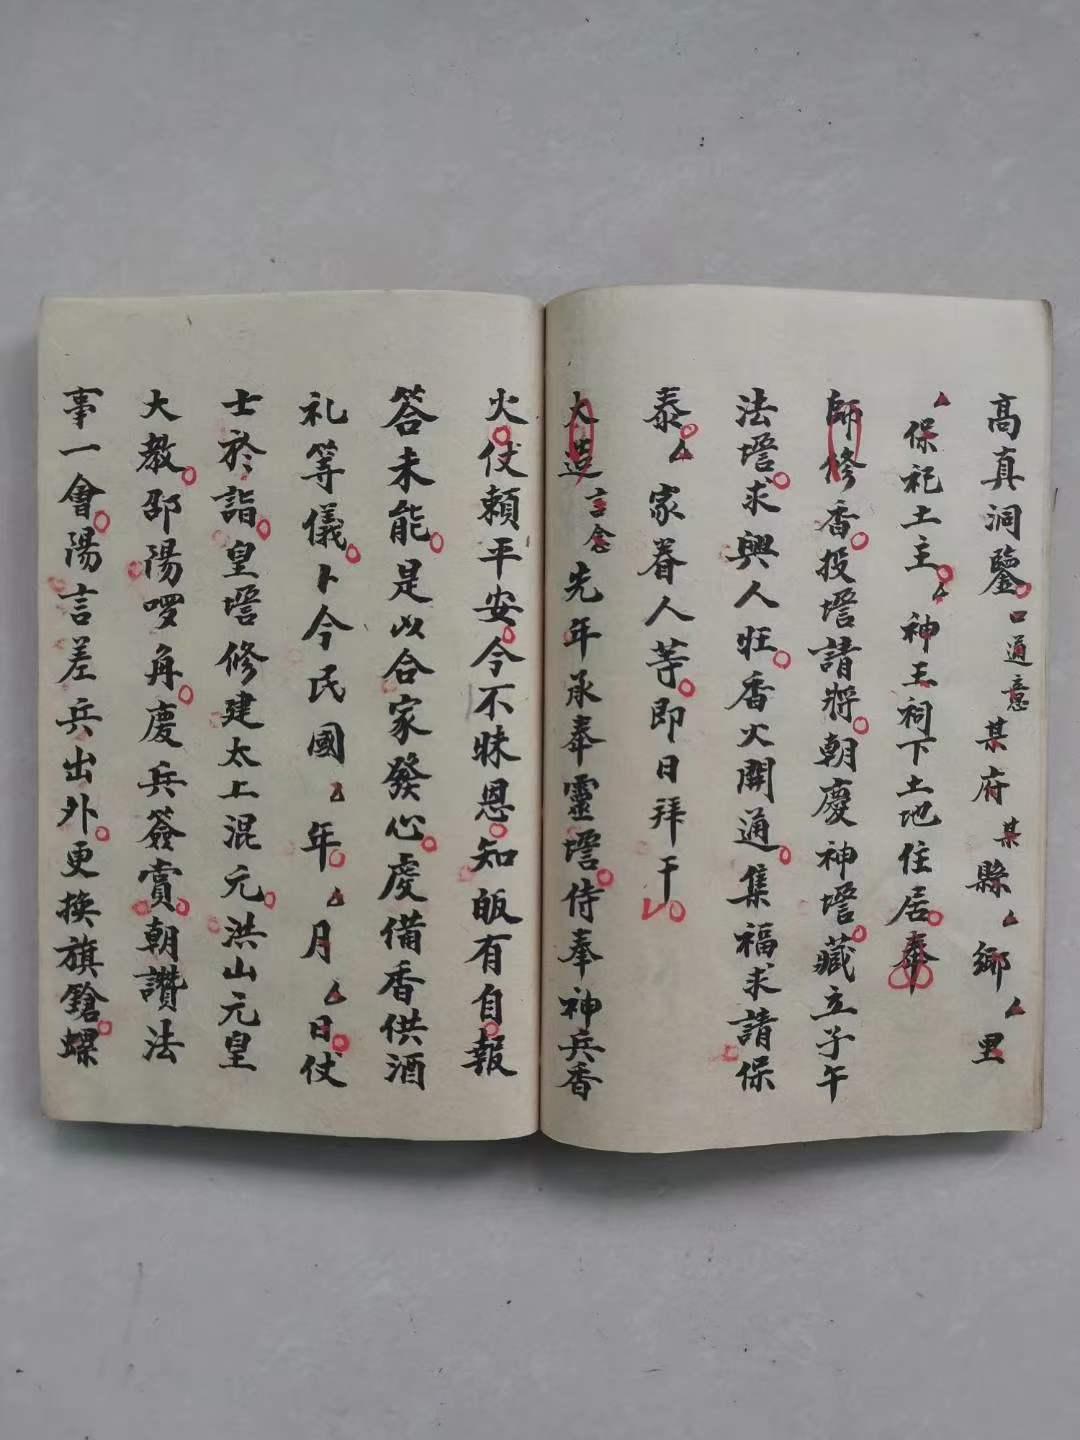 高真洞鑒口通意某府某縣厶鄉厶里
厶保祀土主厶神王祠下土地住居奉
師修香投壋請將朝慶神壋藏立子午
法壋求興人旺香火開通集福求請保
泰厶家眷人等即日拜干
大造言念先年承奉靈壋侍奉神兵香
火仗賴平安今不昧恩知皈有自報
答未能是以合家發心虔備香供酒
礼等儀卜今民國厶年厶月厶日仗
士於詣皇壋修建太上混元洪山元皇
大教邵陽啰角慶兵簽賞朝讚法
事一會陽言差兵出外更換旗鎗螺